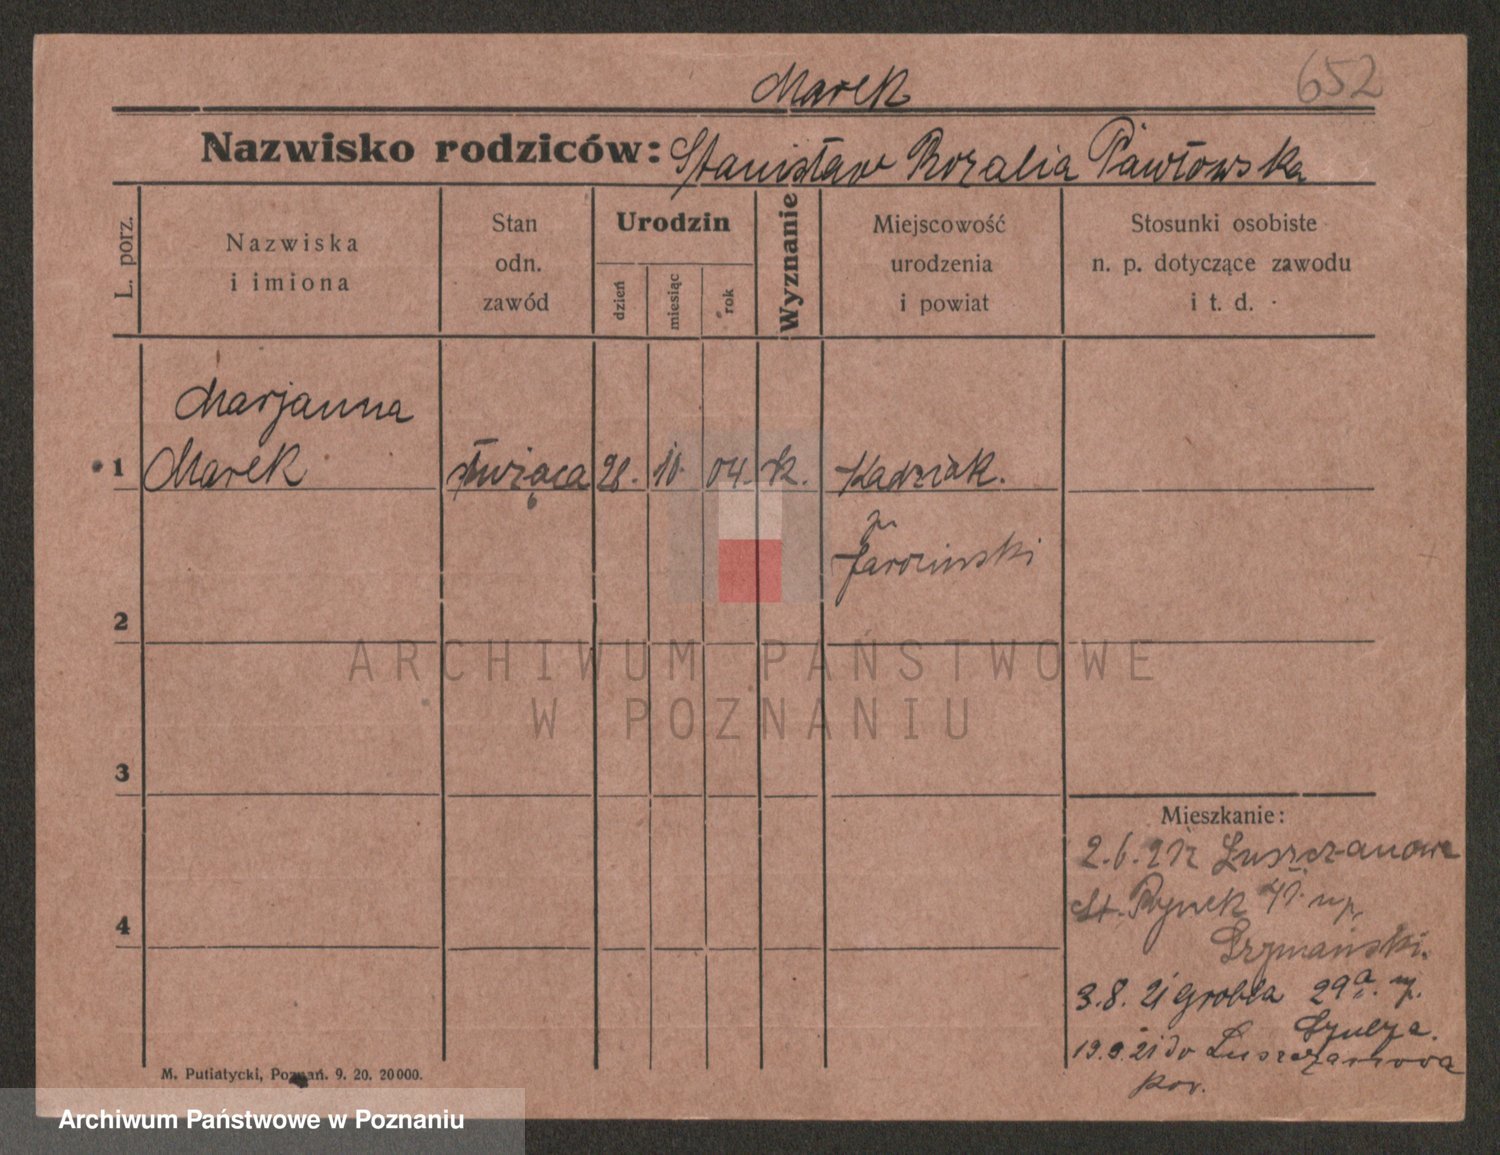 652
Marek
Nazwisko rodziców: Stanisław Rozalia Pawłowska
L. porz.
Nazwiska
i imiona
Stan
odn.
zawód
Urodzin
dzień
miesiąc
rok
Wyznanie
Miejscowość
urodzenia
i powiat
Stosunki osobiste
n. p. dotyczące zawodu
i t. d.
Marjanna
1 Marek służąca 28. 10. 04. k. Kadziak.
p.
Jarociński
2
3
4
Mieszkanie:
2.6.21 z Luszczanowa
St. Rynek
Szymański.
3.8.21 Grobla 29a.
Szulza.
19.9.21 do Luszczanowa
pow.
M. Putiatycki, Poznań. 9. 20. 20000.
ARCHIWUM PAŃSTWOWE
W POZNANIU
Archiwum Państwowe w Poznaniu